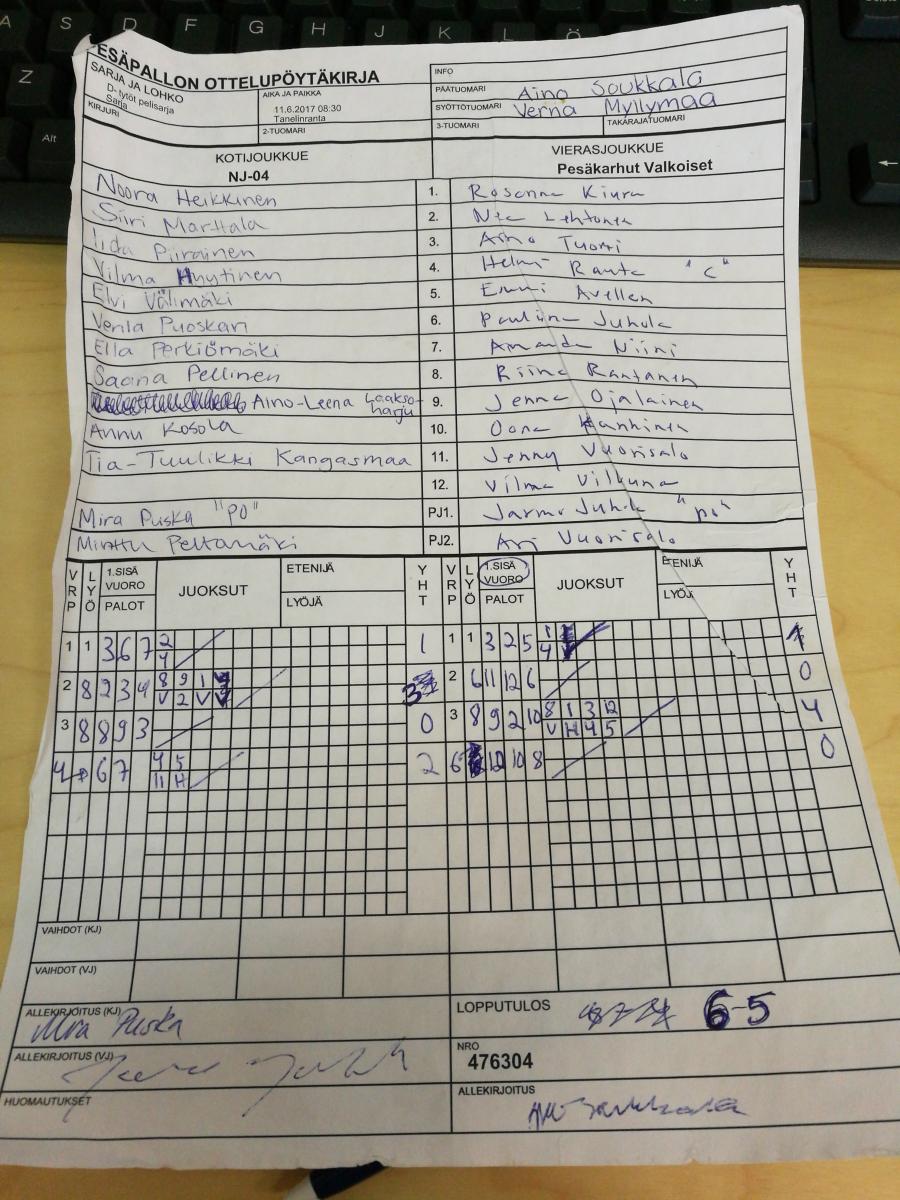 A S D F G H J K L Ö
Z
Alt
ESÄPALLON OTTELUPÖYTÄKIRJA
SARJA JA LOHKO
D- tytöt pelisarja
Sarja
KIRJURI
AIKA JA PAIKKA
11.6.2017 08:30
Tanelinranta
2-TUOMARI
INFO
PÄÄTUOMARI Aino Soukkala
SYÖTTÖTUOMARI Verna Myllymaa
3-TUOMARI TAKARAJATUOMARI
KOTIJOUKKUE VIERASJOUKKUE
NJ-04 Pesäkarhut Valkoiset
Noora Heikkinen 1. Rosanna Kiura
Siiri Marttala 2. Nea Lehtonen
Iida Piirainen 3. Aino Tuomi
Vilma Hyytinen 4. Helmi Ranta "C"
Elvi Välimäki 5. Emmi Avellan
Venla Puoskari 6. Pauliina Juhola
Ella Perkiömäki 7. Amanda Niini
Saana Pellinen 8. Riina Rantanen
Aino-Leena Laakso-harju 9. Jenna Ojalainen
Annu Kosola 10. Oona Hanhinen
Tia-Tuulikki Kangasmaa 11. Jenny Vuorisalo
12. Vilma Vilkuna
Mira Puska "PO" PJ1. Jarmo Juhola "po"
Minttu Peltomäki PJ2. Ari Vuorisalo
VRP LYÖ 1.SISÄ VUORO PALOT JUOKSUT ETENIJÄ LYÖJÄ YHT VRP LYÖ 1.SISÄ VUORO PALOT JUOKSUT ETENIJÄ LYÖJÄ YHT
1 1 3 6 7 2 1 1 1 3 2 5 1 1
4 4
2 8 2 3 4 8 9 1 3 2 6 11 12 6 0
V 2 V
3 8 8 9 3 0 3 8 9 2 10 8 1 3 12 4
V H 4 5
4 6 7 4 5 2 6 12 10 8 0
11 H
VAIHDOT (KJ)
VAIHDOT (VJ)
ALLEKIRJOITUS (KJ) Mira Puska
LOPPUTULOS 6-5
ALLEKIRJOITUS (VJ)
NRO
476304
HUOMAUTUKSET
ALLEKIRJOITUS